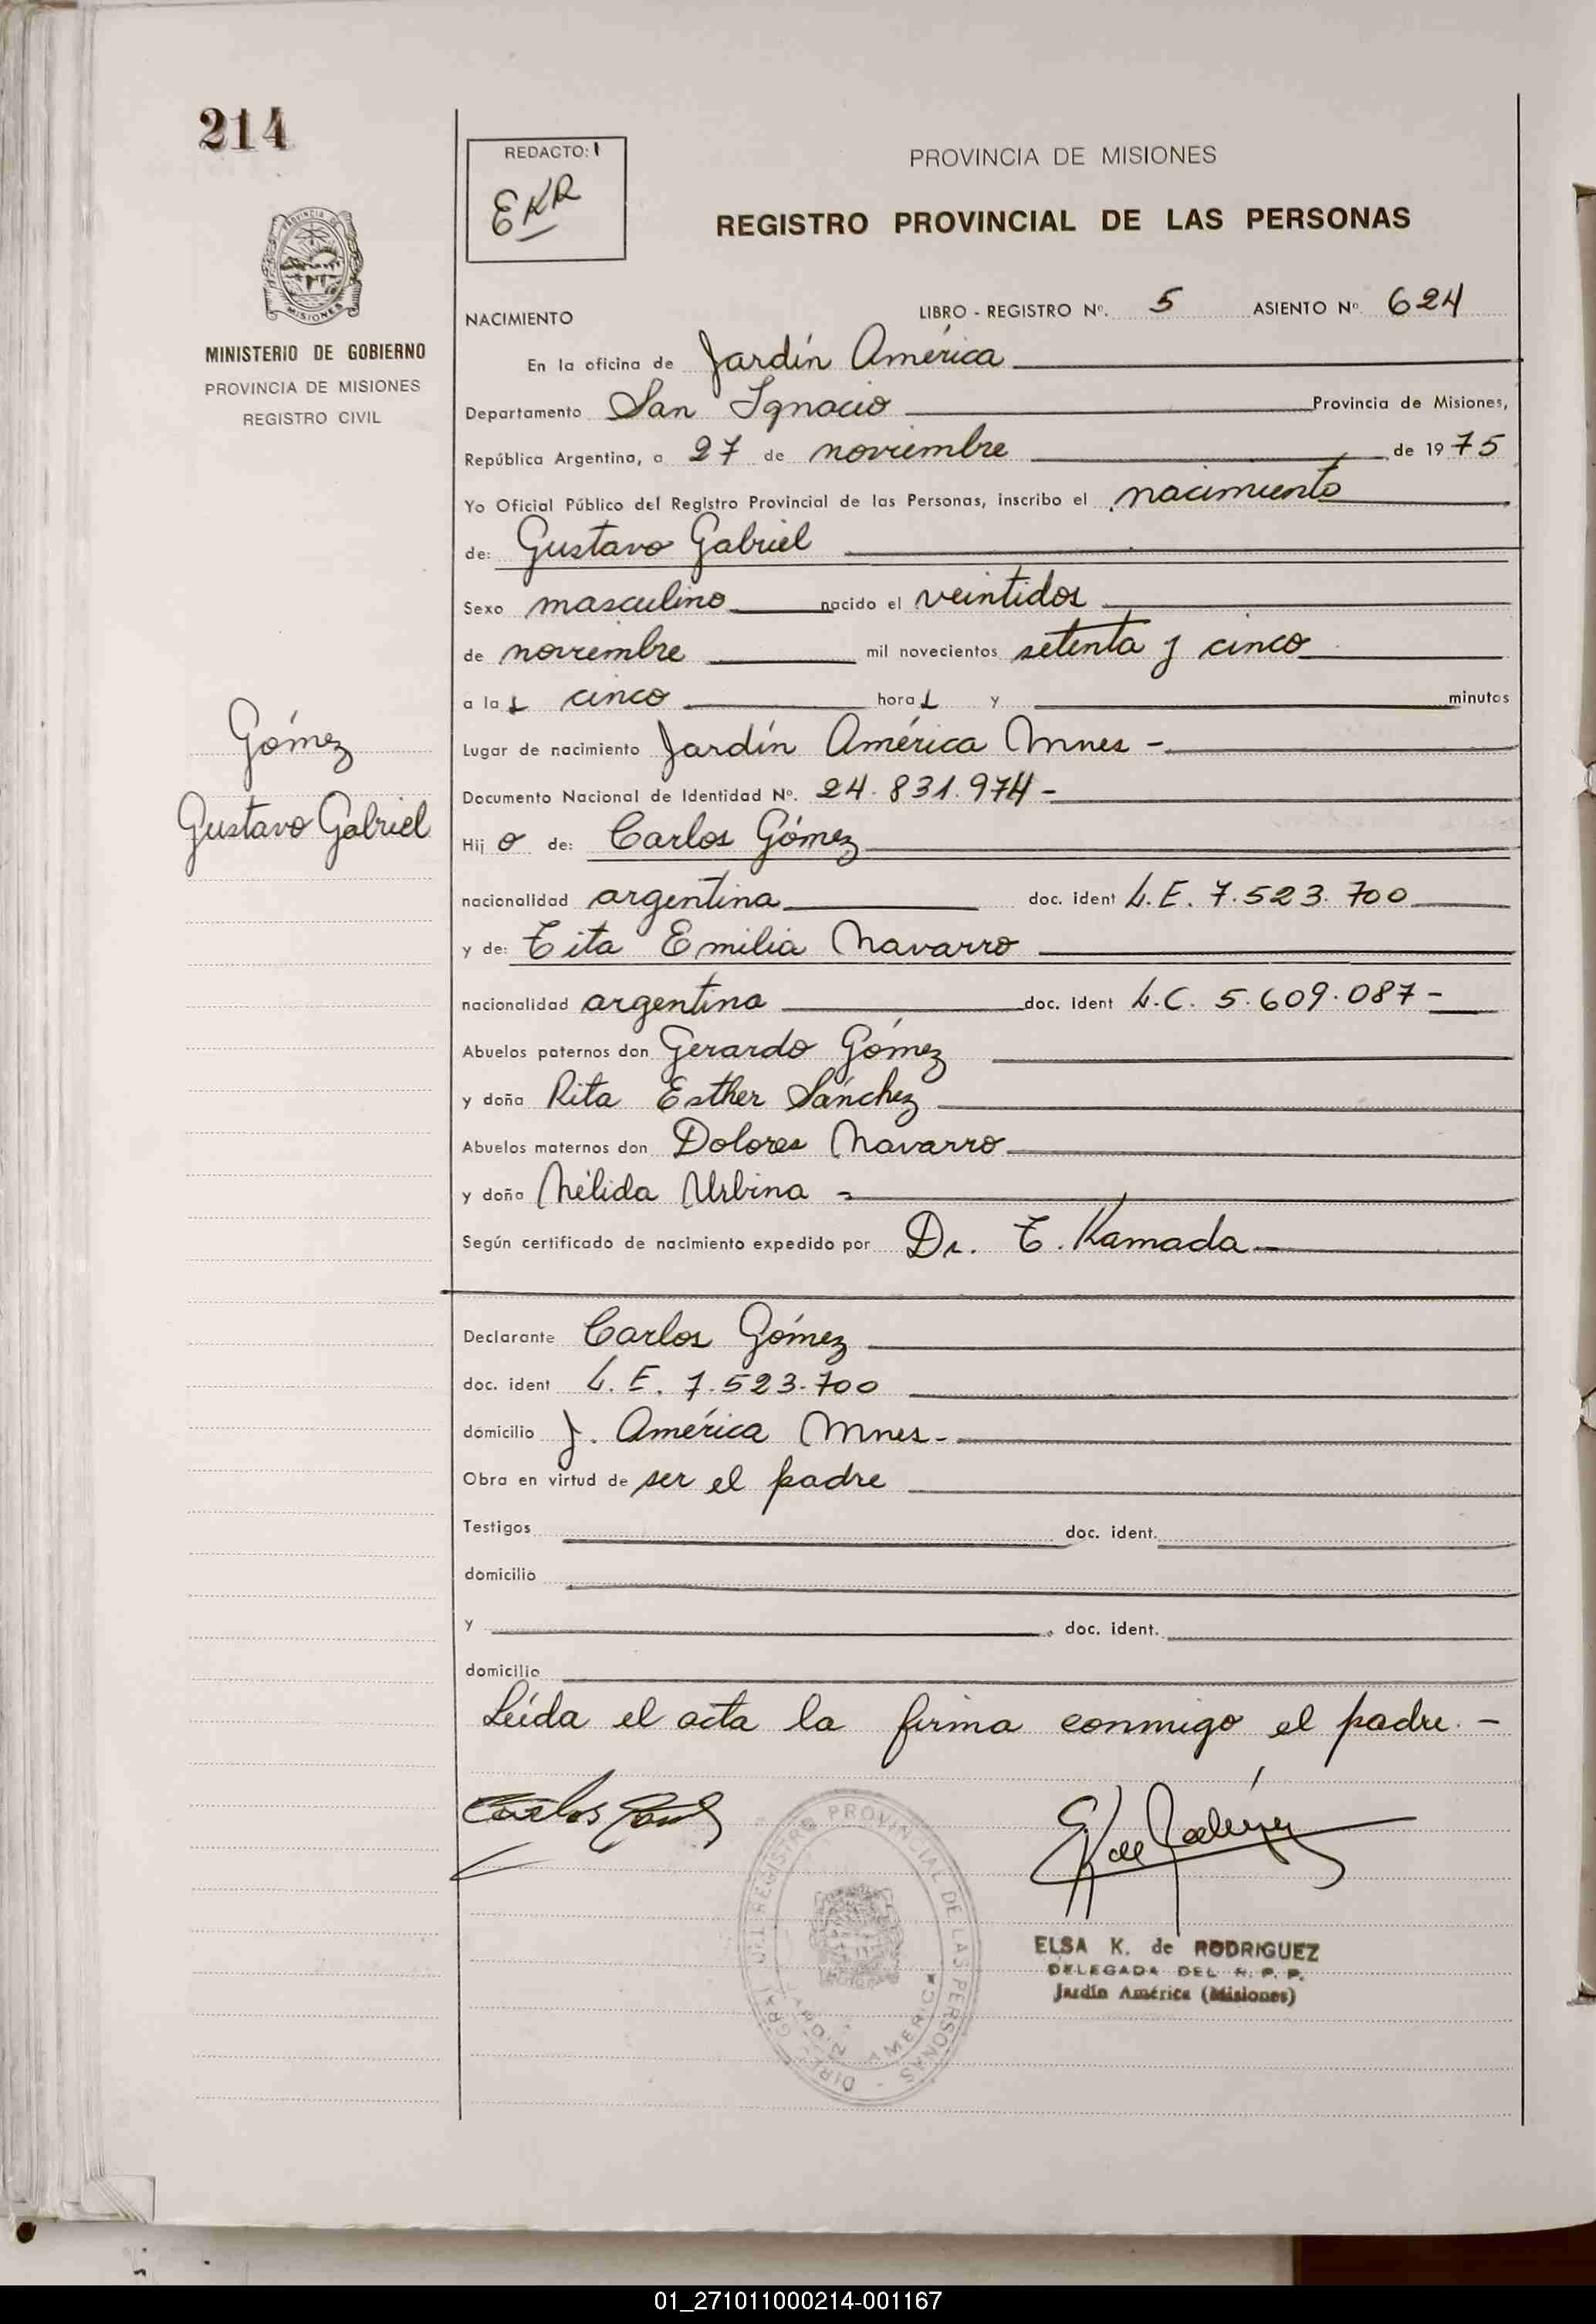 214
REDACTO: 1
EKR
PROVINCIA DE MISIONES
REGISTRO PROVINCIAL DE LAS PERSONAS
MINISTERIO DE GOBIERNO
PROVINCIA DE MISIONES
REGISTRO CIVIL
NACIMIENTO LIBRO - REGISTRO Nº. 5 ASIENTO Nº 624
En la oficina de Jardín América
Departamento San Ignacio Provincia de Misiones,
República Argentina, a 27 de noviembre de 1975
Yo Oficial Público del Registro Provincial de las Personas, inscribo el nacimiento
de: Gustavo Gabriel
Sexo masculino nacido el veintidos
de noviembre mil novecientos setenta y cinco
a las cinco horas y minutos
Gómez
Gustavo Gabriel
Lugar de nacimiento Jardín América Mnes -
Documento Nacional de Identidad Nº. 24.831.974-
Hijo de: Carlos Gómez
nacionalidad argentina doc. ident L.E. 7.523.700
y de: Tita Emilia Navarro
nacionalidad argentina doc. ident L.C. 5.609.087-
Abuelos paternos don Gerardo Gómez
y doña Rita Esther Sánchez
Abuelos maternos don Dolores Navarro
y doña Nélida Urbina =
Según certificado de nacimiento expedido por Dr. T. Kamada -
Declarante Carlos Gómez
doc. ident L.E. 7.523.700
domicilio J. América Mnes-
Obra en virtud de ser el padre
Testigos doc. ident.
domicilio
y doc. ident.
domicilio
Leída el acta la firma conmigo el padre. -
Carlos Gómez
DIREC. GRAL. DEL REGISTRO PROVINCIAL DE LAS PERSONAS -
JARDIN AMERICA
ELSA K. de RODRIGUEZ
DELEGADA DEL R. P. P.
Jardín América (Misiones)
01_271011000214-001167